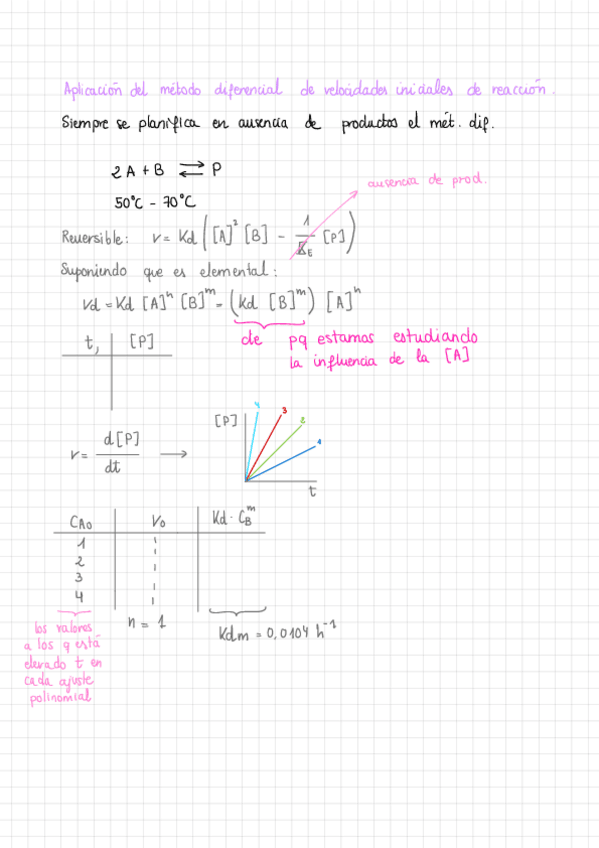 Aplicación del método diferencial de velocidades iniciales de reacción.
Siempre se planifica en ausencia de productos el mét. dif.
2A + B ⇄ P
ausencia de prod.
50°C - 70°C
Reversible: v = Kd ([A]² [B] - 1/K_E [P])
Suponiendo que es elemental:
Vd = Kd [A]ⁿ [B]ᵐ = (Kd [B]ᵐ) [A]ⁿ
cte pq estamos estudiando
la influencia de la [A]
t, [P]
v = d[P]/dt →
[P] 4 3 2 1
t
C_A0 V_0 Kd · C_B^m
1
2
3
4
n = 1
Kdm = 0,0104 h⁻¹
los valores
a los q está
elevado t en
cada ajuste
polinomial